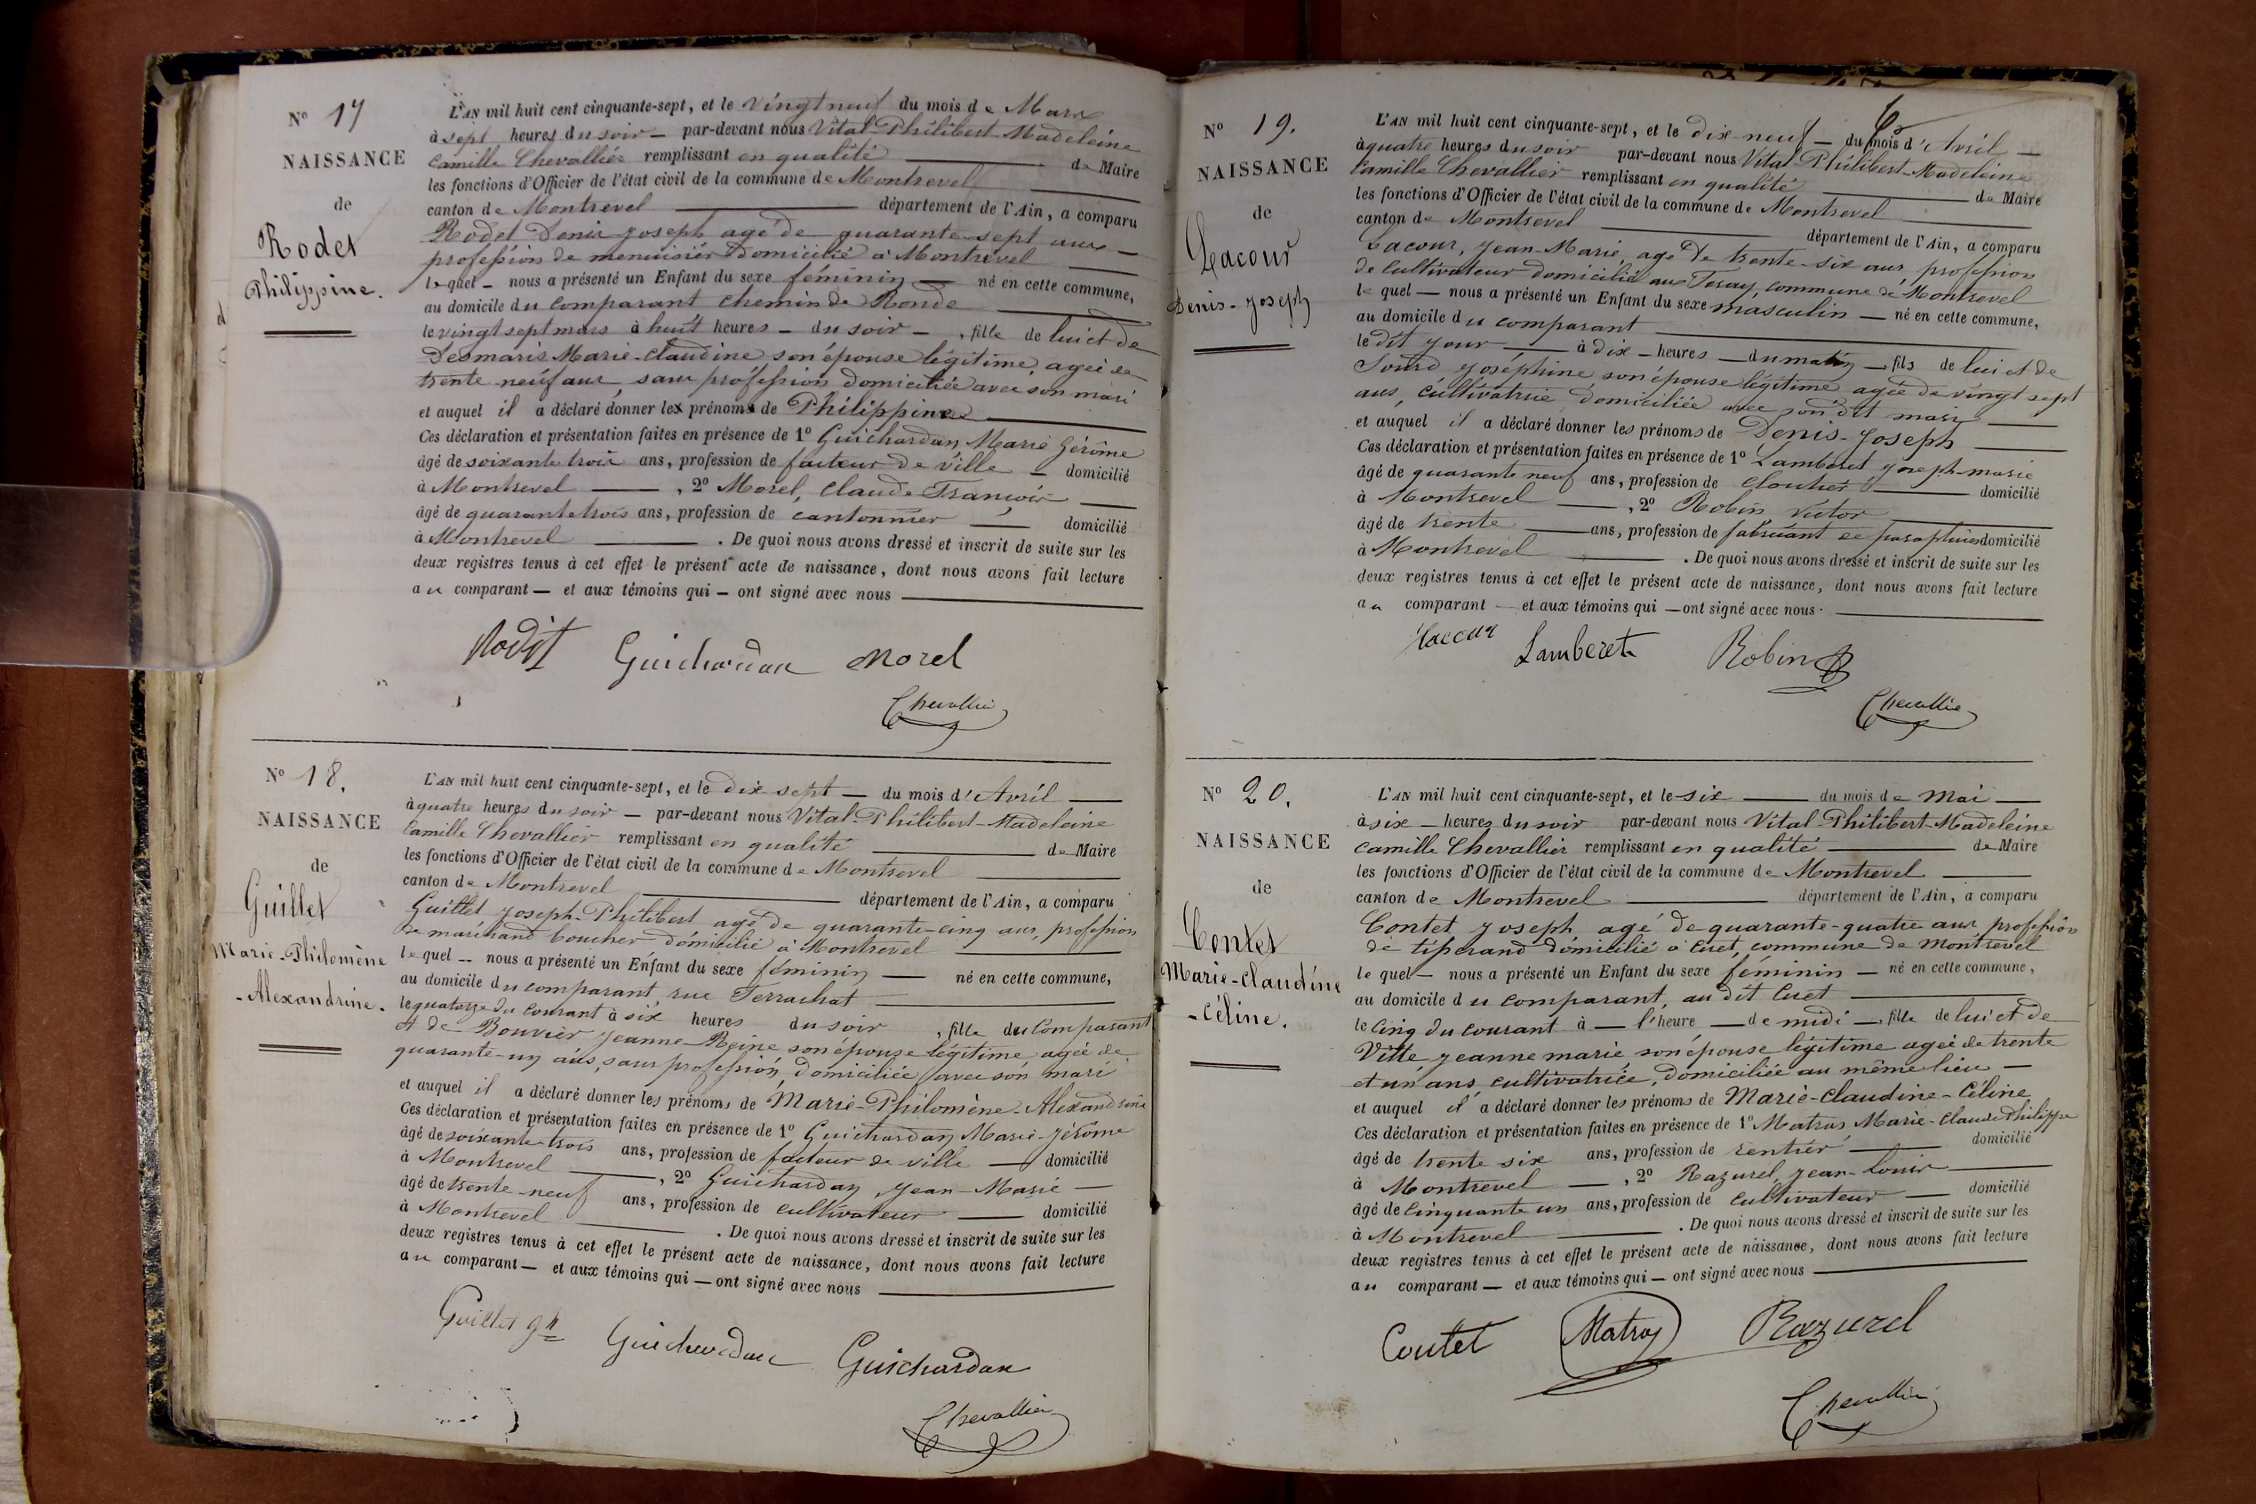 N° 17
NAISSANCE
de
Rodet
Philippine.
L'AN mil huit cent cinquante-sept, et le vingt neuf du mois de Mars
à sept heures du soir — par-devant nous Vital-Philibert-Madeleine
Camille Chevallier remplissant en qualité — de Maire
les fonctions d'Officier de l'état civil de la commune de Montrevel
canton de Montrevel — département de l'Ain, a comparu
Rodet Denis Joseph agé de quarante-sept ans —
profession de menuisier domicilié à Montrevel —
lequel — nous a présenté un Enfant du sexe féminin — né en cette commune,
au domicile du comparant chemin de Ronde —
le vingt sept mars à huit heures — du soir —, fille de lui et de
Desmaris Marie-Claudine son épouse légitime, agée de
trente-neuf ans, sans profession domiciliée avec son mari
et auquel il a déclaré donner les prénoms de Philippine —
Ces déclaration et présentation faites en présence de 1° Guichardan Marie Jérôme
âgé de soixante trois ans, profession de facteur de ville — domicilié
à Montrevel —, 2° Morel, Claude François —
âgé de quarante trois ans, profession de cantonnier — domicilié
à Montrevel — . De quoi nous avons dressé et inscrit de suite sur les
deux registres tenus à cet effet le présent acte de naissance, dont nous avons fait lecture
au comparant — et aux témoins qui — ont signé avec nous —
Rodet Guichardan Morel
Chevallier
N° 18.
NAISSANCE
de
Guillet
Marie-Philomène
-Alexandrine.
L'AN mil huit cent cinquante-sept, et le dix sept — du mois d'Avril —
à quatre heures du soir — par-devant nous Vital-Philibert-Madeleine
Camille Chevallier remplissant en qualité — de Maire
les fonctions d'Officier de l'état civil de la commune de Montrevel —
canton de Montrevel — département de l'Ain, a comparu
Guillet Joseph-Philibert agé de quarante-cinq ans, profession
de marchand boucher domicilié à Montrevel —
lequel — nous a présenté un Enfant du sexe féminin — né en cette commune,
au domicile du comparant, rue Ferrachat —
le quatorze du courant à six heures du soir, fille du comparant
et de Bouvier Jeanne-Reine son épouse légitime agée de
quarante-un ans, sans profession, domiciliée avec son mari
et auquel il a déclaré donner les prénoms de Marie-Philomène-Alexandrine
Ces déclaration et présentation faites en présence de 1° Guichardan Marie-Jérôme
âgé de soixante-trois ans, profession de facteur de ville — domicilié
à Montrevel —, 2° Guichardan Jean-Marie —
âgé de trente-neuf ans, profession de cultivateur — domicilié
à Montrevel — . De quoi nous avons dressé et inscrit de suite sur les
deux registres tenus à cet effet le présent acte de naissance, dont nous avons fait lecture
au comparant — et aux témoins qui — ont signé avec nous —
Guillet Guichardan Guichardan
Chevallier
N° 19.
NAISSANCE
de
Lacour
Denis-Joseph
L'AN mil huit cent cinquante-sept, et le dix-neuf — du mois d'Avril —
à quatre heures du soir par-devant nous Vital-Philibert-Madeleine
Camille Chevallier remplissant en qualité — de Maire
les fonctions d'Officier de l'état civil de la commune de Montrevel
canton de Montrevel — département de l'Ain, a comparu
Lacour, Jean-Marie, agé de trente-six ans, profession
de cultivateur domicilié aux commune de Montrevel
lequel — nous a présenté un Enfant du sexe masculin — né en cette commune,
au domicile du comparant —
le dit jour — à dix — heures — du matin — fils de lui et de
Sourd Joséphine son épouse légitime agée de vingt sept
ans, cultivatrice, domiciliée avec son dit mari —
et auquel il a déclaré donner les prénoms de Denis-Joseph —
Ces déclaration et présentation faites en présence de 1° Lamberet Joseph-marie
âgé de quarante neuf ans, profession de cloutier — domicilié
à Montrevel —, 2° Robin Victor —
âgé de trente — ans, profession de fabricant de parapluies domicilié
à Montrevel — . De quoi nous avons dressé et inscrit de suite sur les
deux registres tenus à cet effet le présent acte de naissance, dont nous avons fait lecture
au comparant — et aux témoins qui — ont signé avec nous. —
Lacour Lamberet Robin
Chevallier
N° 20.
NAISSANCE
de
Contet
Marie-Claudine
-Céline.
L'AN mil huit cent cinquante-sept, et le six — du mois de Mai —
à six — heures du soir par-devant nous Vital-Philibert-Madeleine
Camille Chevallier remplissant en qualité — de Maire
les fonctions d'Officier de l'état civil de la commune de Montrevel —
canton de Montrevel — département de l'Ain, a comparu
Contet Joseph agé de quarante-quatre ans profession
de tisserand domicilié à Cuet, commune de Montrevel
lequel — nous a présenté un Enfant du sexe féminin — né en cette commune,
au domicile du comparant, au dit Cuet —
le cinq du courant à — l'heure — de midi — fille de lui et de
Jeanne marie son épouse légitime agée de trente
et un ans cultivatrice, domiciliée au même lieu —
et auquel il a déclaré donner les prénoms de Marie-Claudine-Céline
Ces déclaration et présentation faites en présence de 1° Matras Marie-Claude Philippe
âgé de trente six ans, profession de rentier — domicilié
à Montrevel —, 2° Razurel, Jean-Louis —
âgé de cinquante un ans, profession de cultivateur — domicilié
à Montrevel — . De quoi nous avons dressé et inscrit de suite sur les
deux registres tenus à cet effet le présent acte de naissance, dont nous avons fait lecture
au comparant — et aux témoins qui — ont signé avec nous —
Contet Matras Razurel
Chevallier